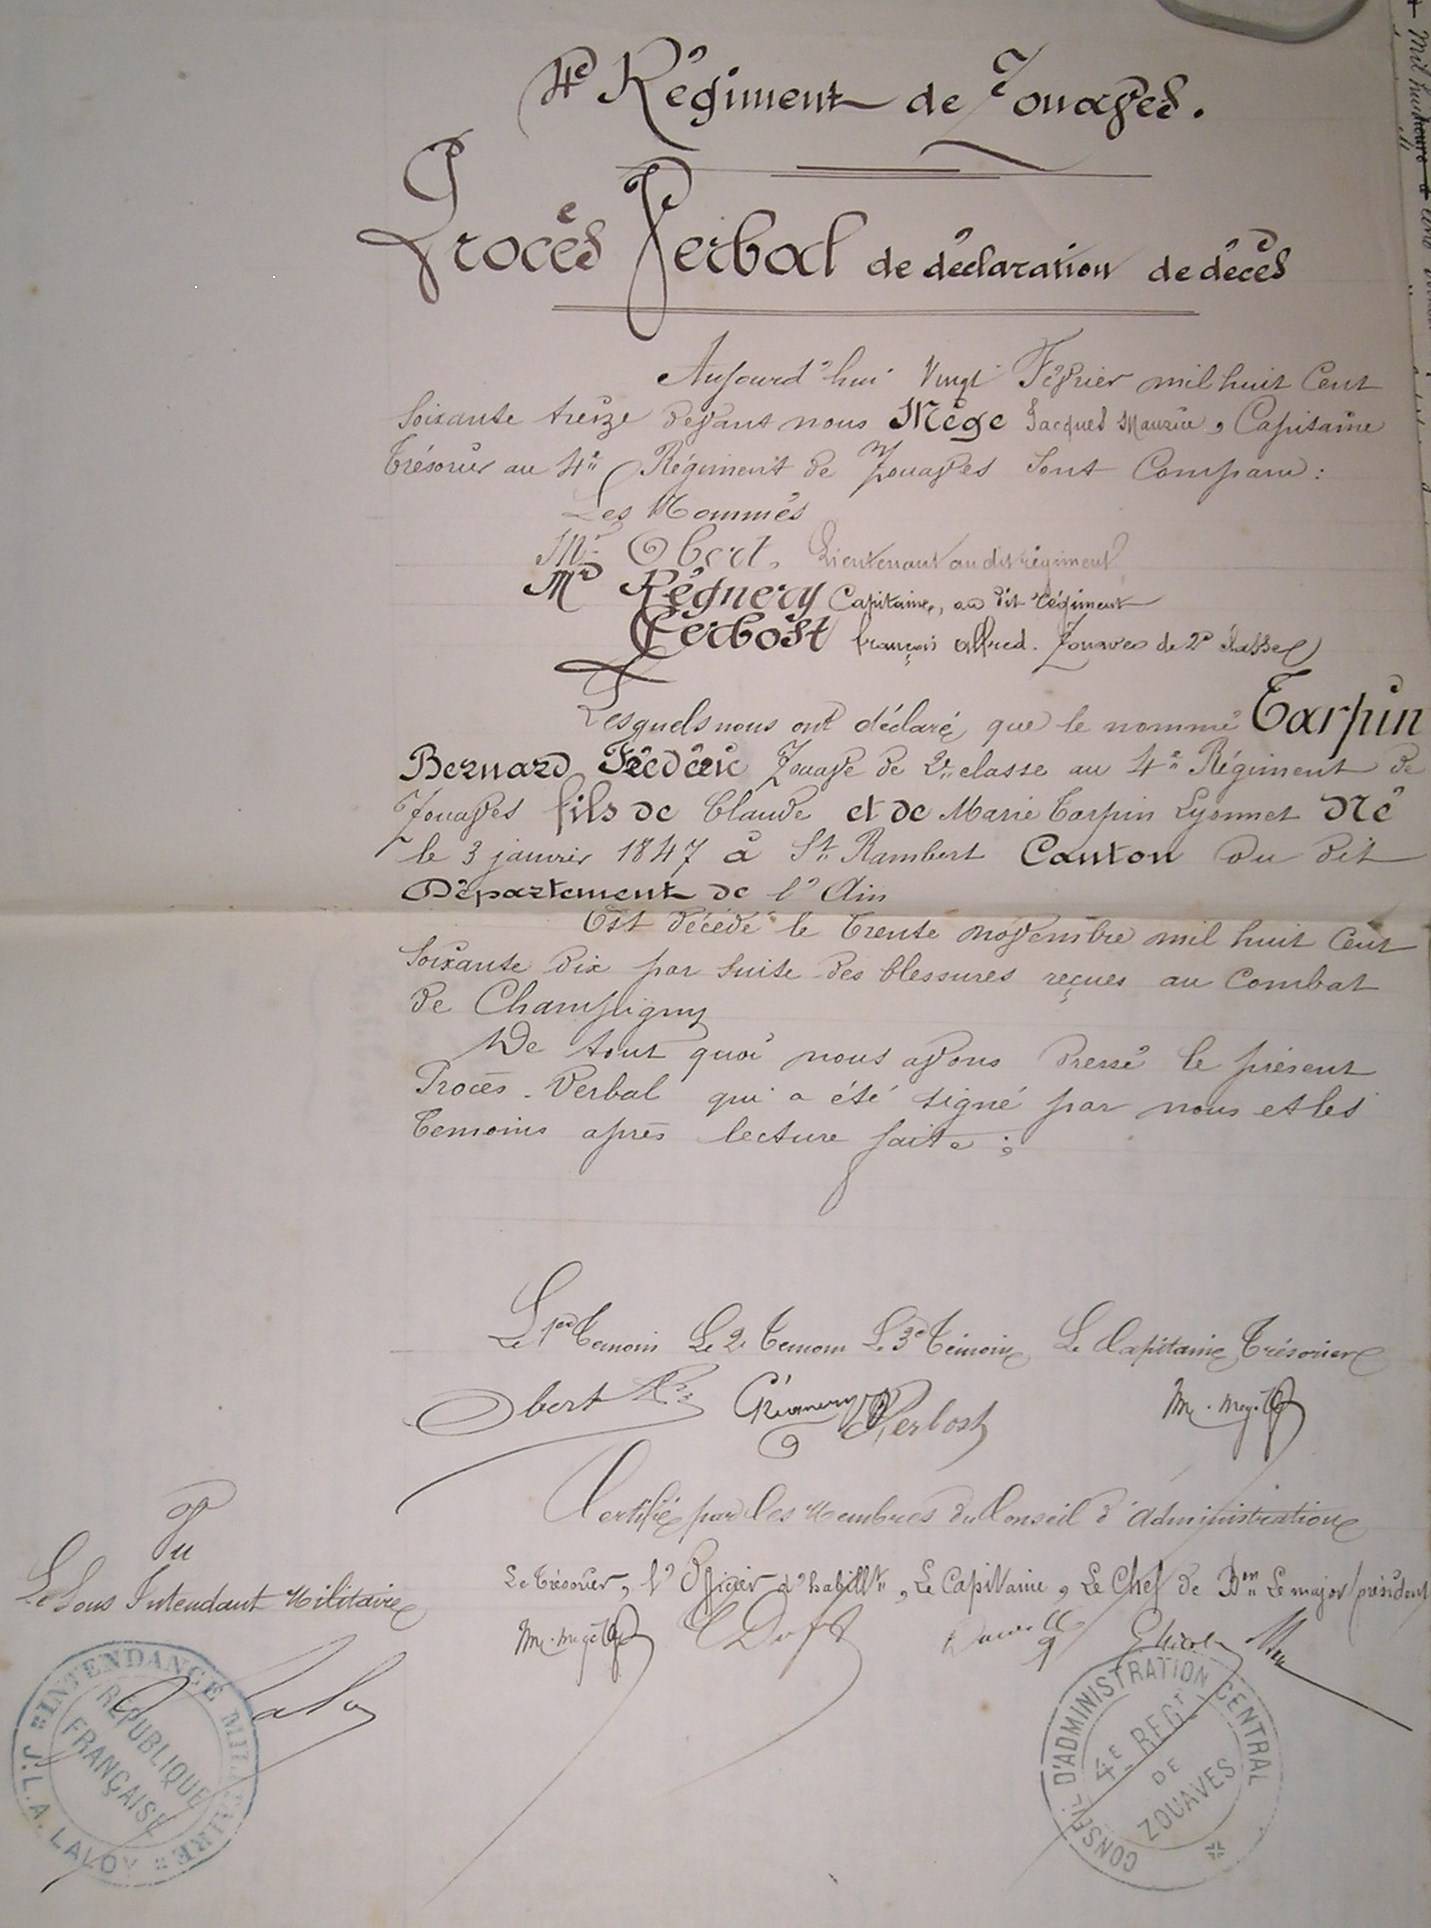 4e Régiment de Zouaves.
Procès Verbal de déclaration de décès
Aujourd'hui Vingt Février mil huit Cent
Soixante treize devant nous Mège Jacques Maurice, Capitaine
Trésorier au 4e Régiment de Zouaves Sont Comparu :
Les Nommés
Mr Obert, Lieutenant au dit régiment
Mr Régnery Capitaine, au dit régiment
Kerbost françois Alfred. Zouave de 2e classe
Lesquels nous ont déclaré que le nommé Tarpin
Bernard Frédéric Zouave de 2e classe au 4e Régiment de
Zouaves fils de Claude et de Marie Tarpin Lyonnet Né
le 3 janvier 1847 à St Rambert Canton du dit
Département de l'Ain
Est décédé le trente novembre mil huit Cent
Soixante dix par suite des blessures reçues au Combat
de Champigny
De tout quoi nous avons dressé le présent
Procès-Verbal qui a été signé par nous et les
témoins après lecture faite ;
Le 1er témoin Le 2e témoin Le 3e témoin Le Capitaine Trésorier
Obert Régnery Kerbost M. Mège
Certifié par les Membres du Conseil d'administration
Vu
Le Sous Intendant Militaire
Le Trésorier, l'Officier d'habillt, Le Capitaine, Le Chef de Bon Le major président
M. Mège
Laloy
INTENDANCE MILITAIRE
RÉPUBLIQUE
FRANÇAISE
J.L.A. LALOY
CONSEIL D'ADMINISTRATION CENTRAL
4E REGT
DE
ZOUAVES